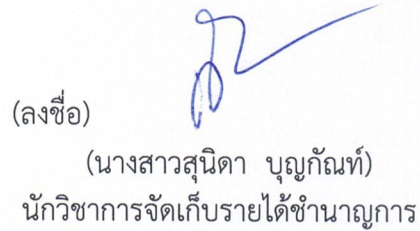 (ลงชื่อ)
(นางสาวสุนิดา บุญกัณท์)
นักวิชาการจัดเก็บรายได้ชำนาญการ